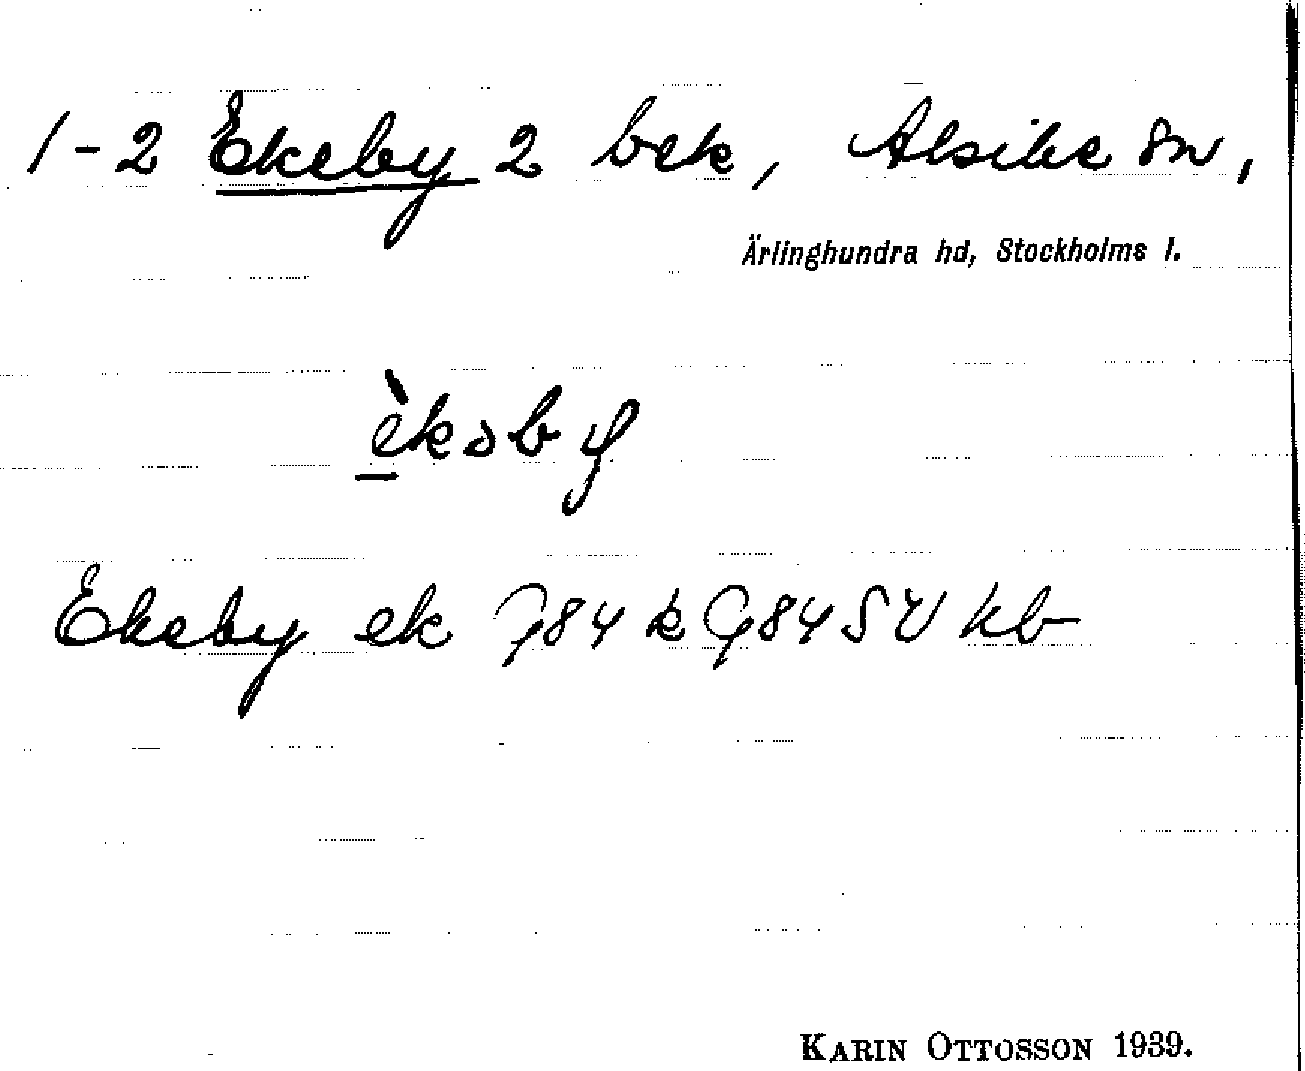 1-2 Ekeby 2 bek, Alsike sn,
Ärlinghundra hd, Stockholms l.
Ekeby ek J84 k G84SV kb
KARIN OTTOSSON 1939.